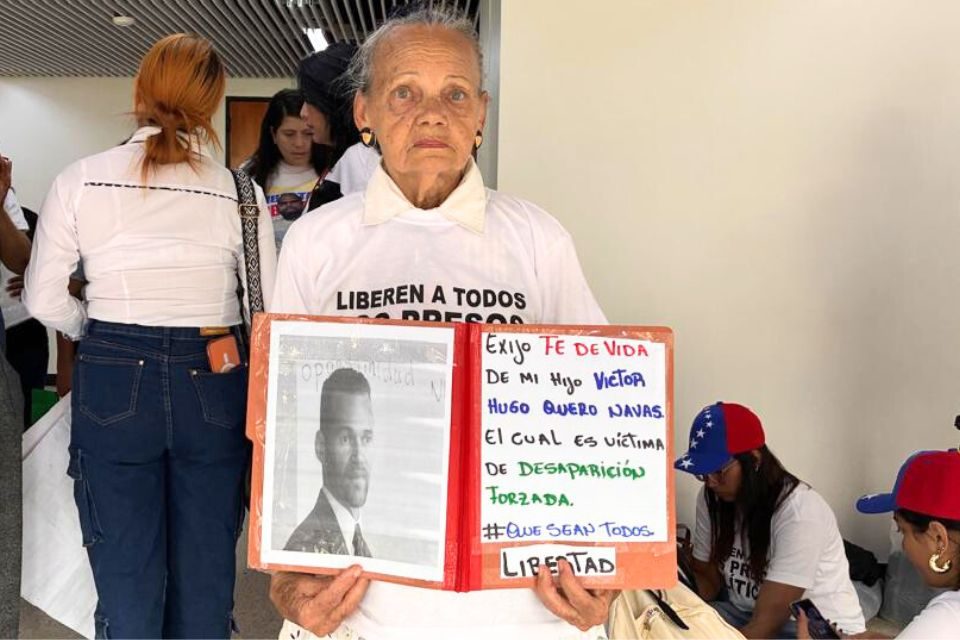 LIBEREN A TODOS
PRESO
oportunidad
EXIJO FE DE VIDA
DE MI HIJO VICTOR
HUGO QUERO NAVAS.
El CUAL ES VÍCTIMA
DE DESAPARICIÓN
FORZADA.
#QUE SEAN TODOS.
LIBERTAD